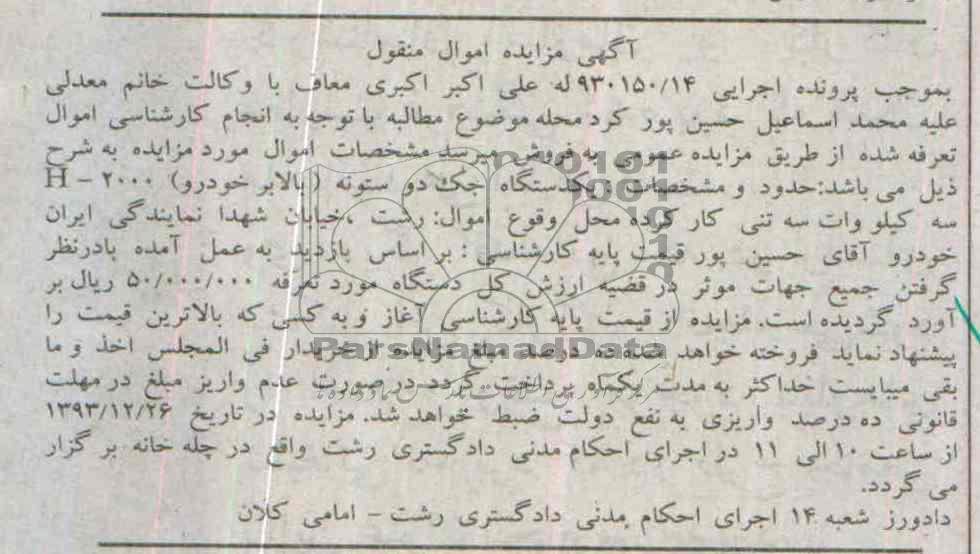 آگهی مزایده اموال منقول
بموجب پرونده اجرایی ۹۳۰۱۵۰/۱۴ له علی اکبر اکبری معاف با وکالت خانم معدلی
علیه محمد اسماعیل حسین پور کرد محله موضوع مطالبه با توجه به انجام کارشناسی اموال
تعرفه شده از طریق مزایده عمومی به فروش میرسد مشخصات اموال مورد مزایده به شرح
ذیل می باشد:حدود و مشخصات : یکدستگاه جک دو ستونه (بالابر خودرو) H – ۲۰۰۰
سه کیلو وات سه تنی کار کرده محل وقوع اموال: رشت ،خیابان شهدا نمایندگی ایران
خودرو آقای حسین پور قیمت پایه کارشناسی : بر اساس بازدید به عمل آمده بادرنظر
گرفتن جمیع جهات موثر در قضیه ارزش کل دستگاه مورد تعرفه ۵۰/۰۰۰/۰۰۰ ریال بر
آورد گردیده است. مزایده از قیمت پایه کارشناسی آغاز و به کسی که بالاترین قیمت را
پیشنهاد نماید فروخته خواهد شد ده درصد مبلغ مزایده از خریدار فی المجلس اخذ و ما
بقی میبایست حداکثر به مدت یکماه پرداخت گردد در صورت عدم واریز مبلغ در مهلت
قانونی ده درصد واریزی به نفع دولت ضبط خواهد شد. مزایده در تاریخ ۱۳۹۳/۱۲/۲۶
از ساعت ۱۰ الی ۱۱ در اجرای احکام مدنی دادگستری رشت واقع در چله خانه بر گزار
می گردد.
دادورز شعبه ۱۴ اجرای احکام مدنی دادگستری رشت – امامی کلان
ParsNamadData